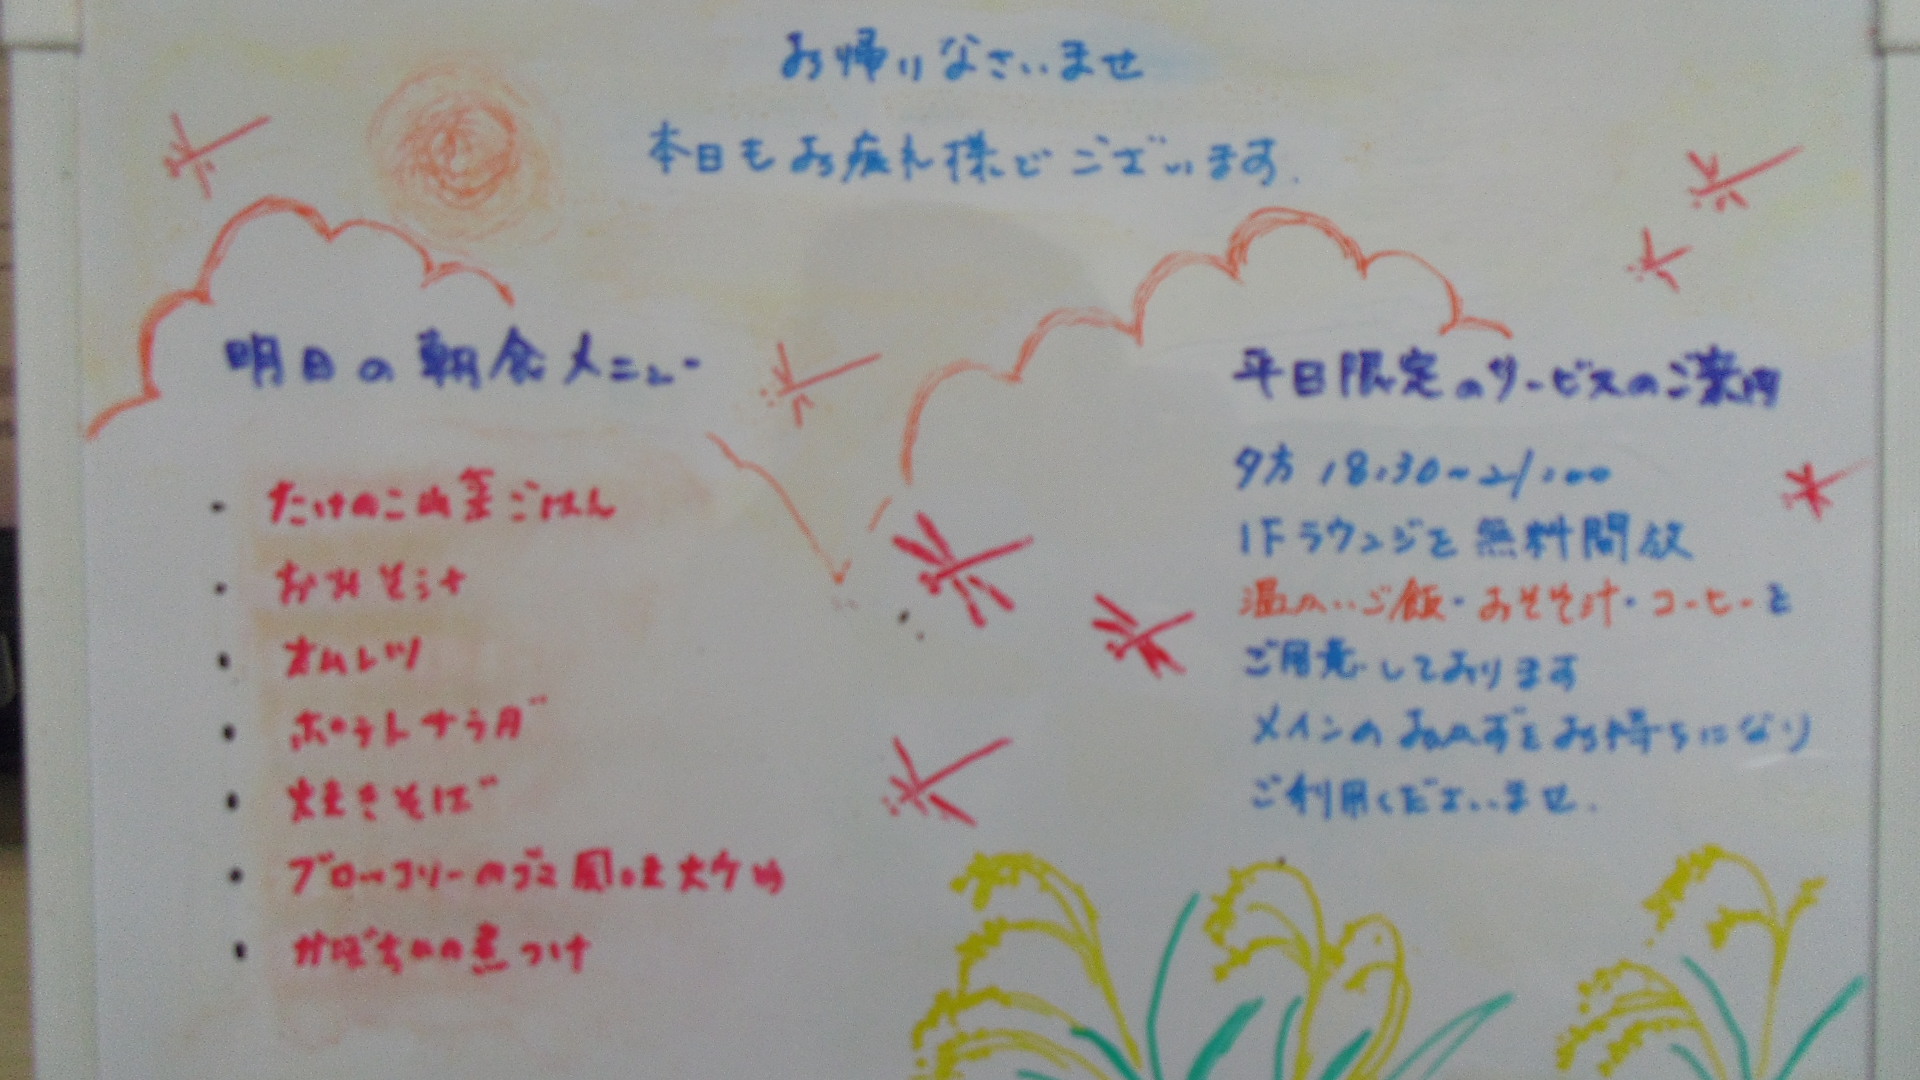 お帰りなさいませ
本日もお疲れ様でございます.
明日の朝食メニュー
・たけのこ山釜ごはん
・おみそ汁
・オムレツ
・ポテトサラダ
・焼きそば
・ブローッコリーのゴマ風味
・かぼちゃの煮つけ
平日限定のサービスのご案内
夕方 18:30~21:00
1Fラウンジを無料開放
温かいご飯・おみそ汁・コーヒーを
ご用意しております
メインのおかずをお持ちになり
ご利用くださいませ.